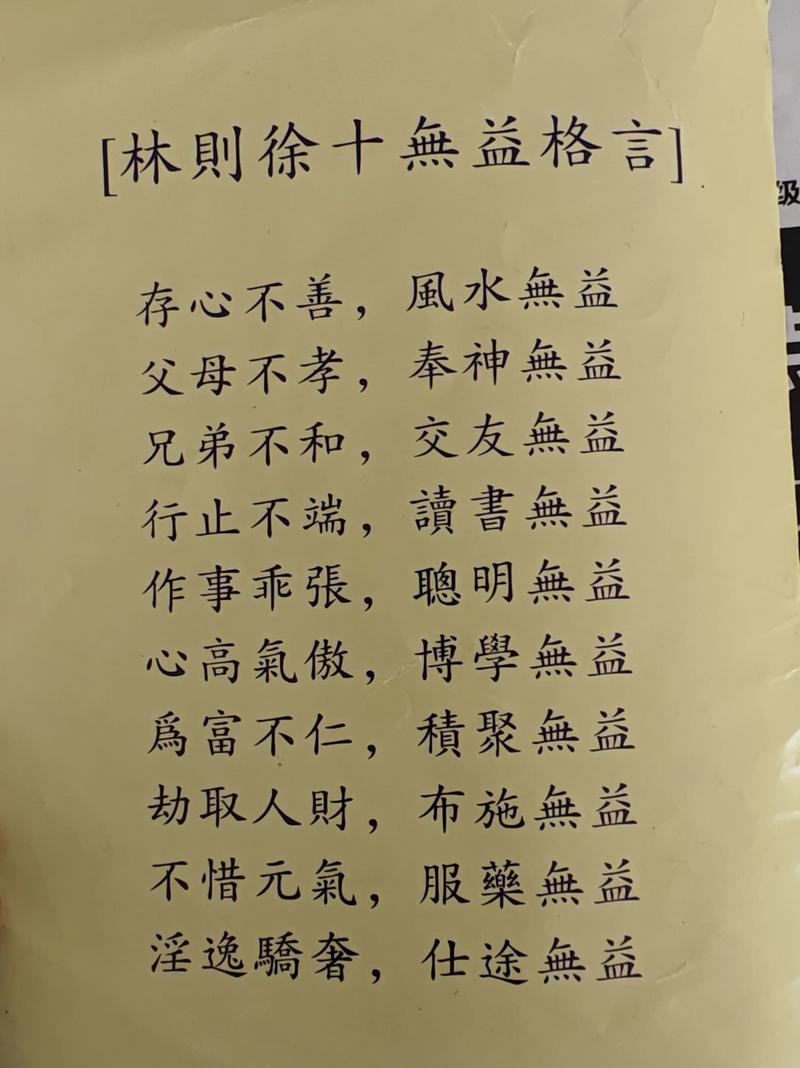 [林則徐十無益格言]
存心不善，風水無益
父母不孝，奉神無益
兄弟不和，交友無益
行止不端，讀書無益
作事乖張，聰明無益
心高氣傲，博學無益
爲富不仁，積聚無益
劫取人財，布施無益
不惜元氣，服藥無益
淫逸驕奢，仕途無益
级